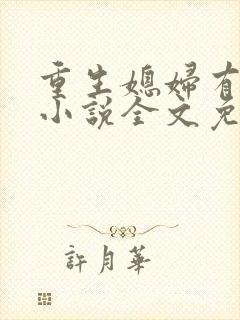 重生媳婦有
小說全文免
許月華